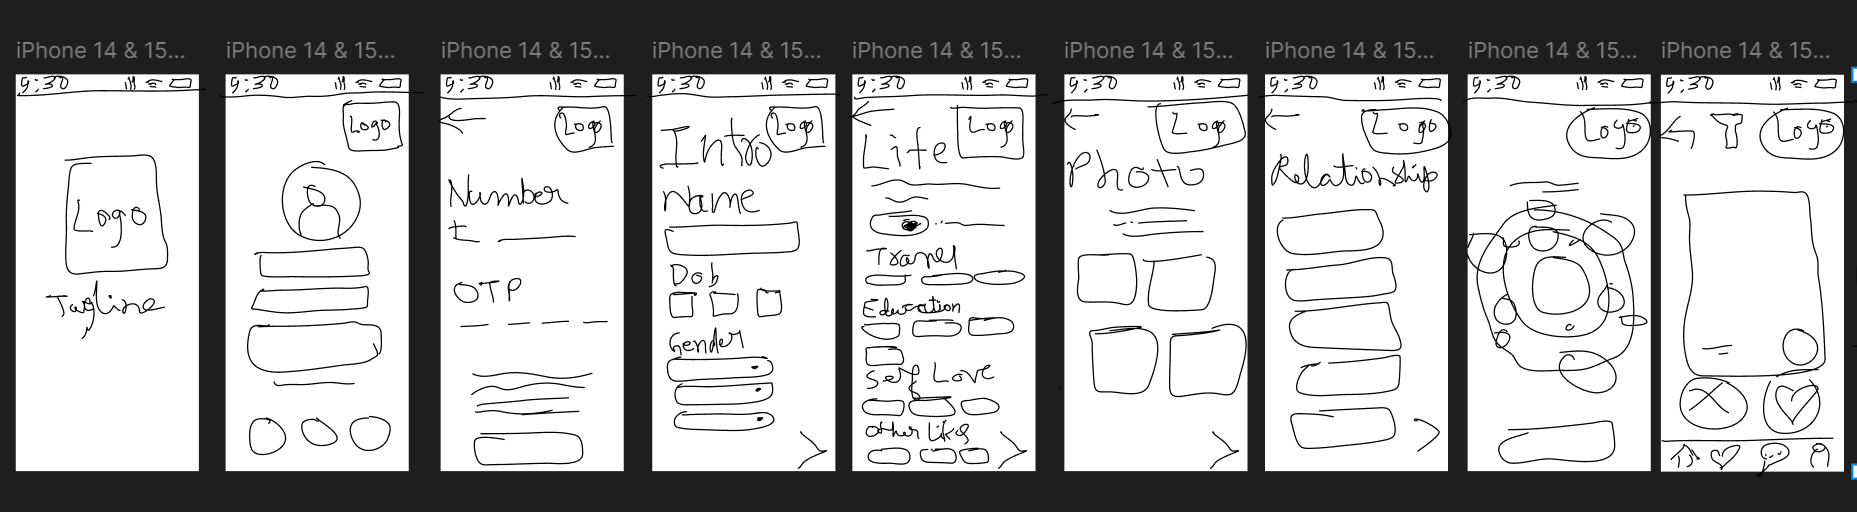 iPhone 14 & 15...
9:30
Logo
Tagline
iPhone 14 & 15...
9:30
Logo
iPhone 14 & 15...
9:30
Logo
Number
OTP
iPhone 14 & 15...
9:30
Logo
Intro
Name
Dob
Gender
iPhone 14 & 15...
9:30
Logo
Life
Travel
Education
Self Love
Other Likes
iPhone 14 & 15...
9:30
Logo
Photo
iPhone 14 & 15...
9:30
Logo
Relationship
iPhone 14 & 15...
9:30
Logo
iPhone 14 & 15...
9:30
Logo